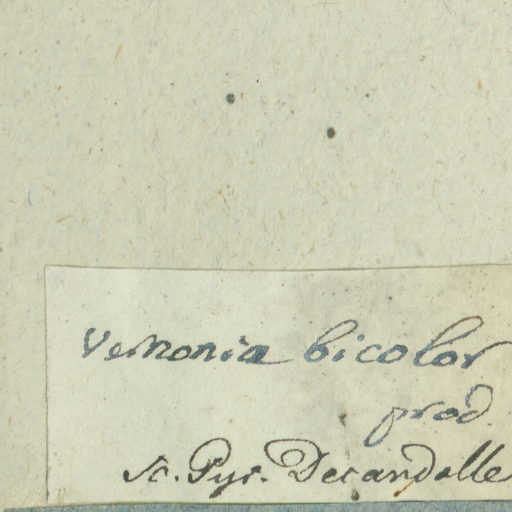 Vernonia bicolor
prod.
A. Pyr. Decandolle